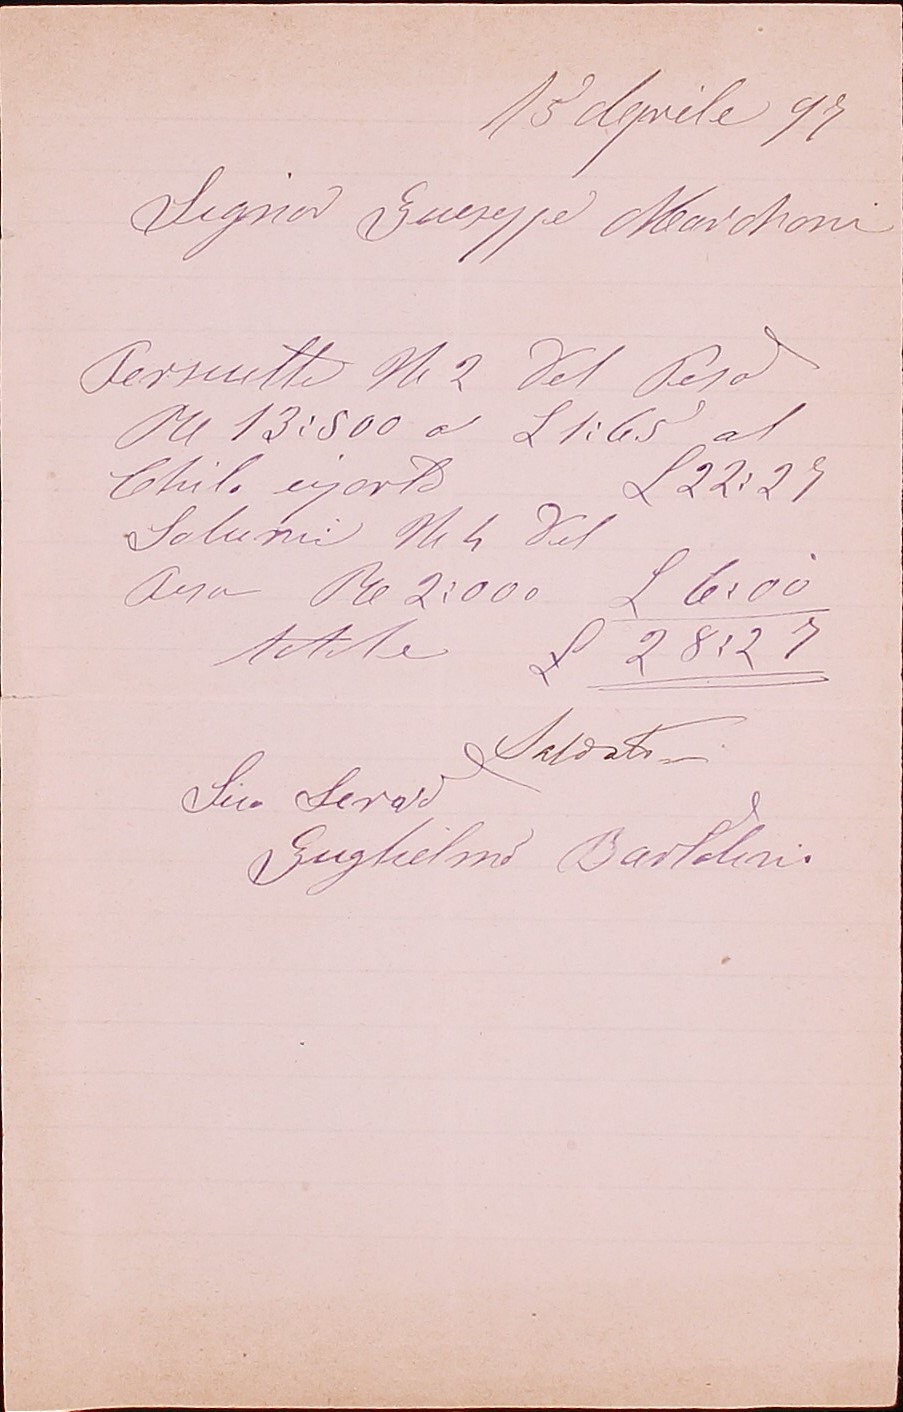 15 daprile 97
Signor Gueseppe Marchoni
Persutte N 2 del Peso
K 13:500 a £ 1:65 al
Chilo ijorto £ 22:27
Salumi N 4 del
Peso K 2:000 £ 6:00
totale £ 28:27
Saldato
Suo Servo
Guglielmo Bartoleni.